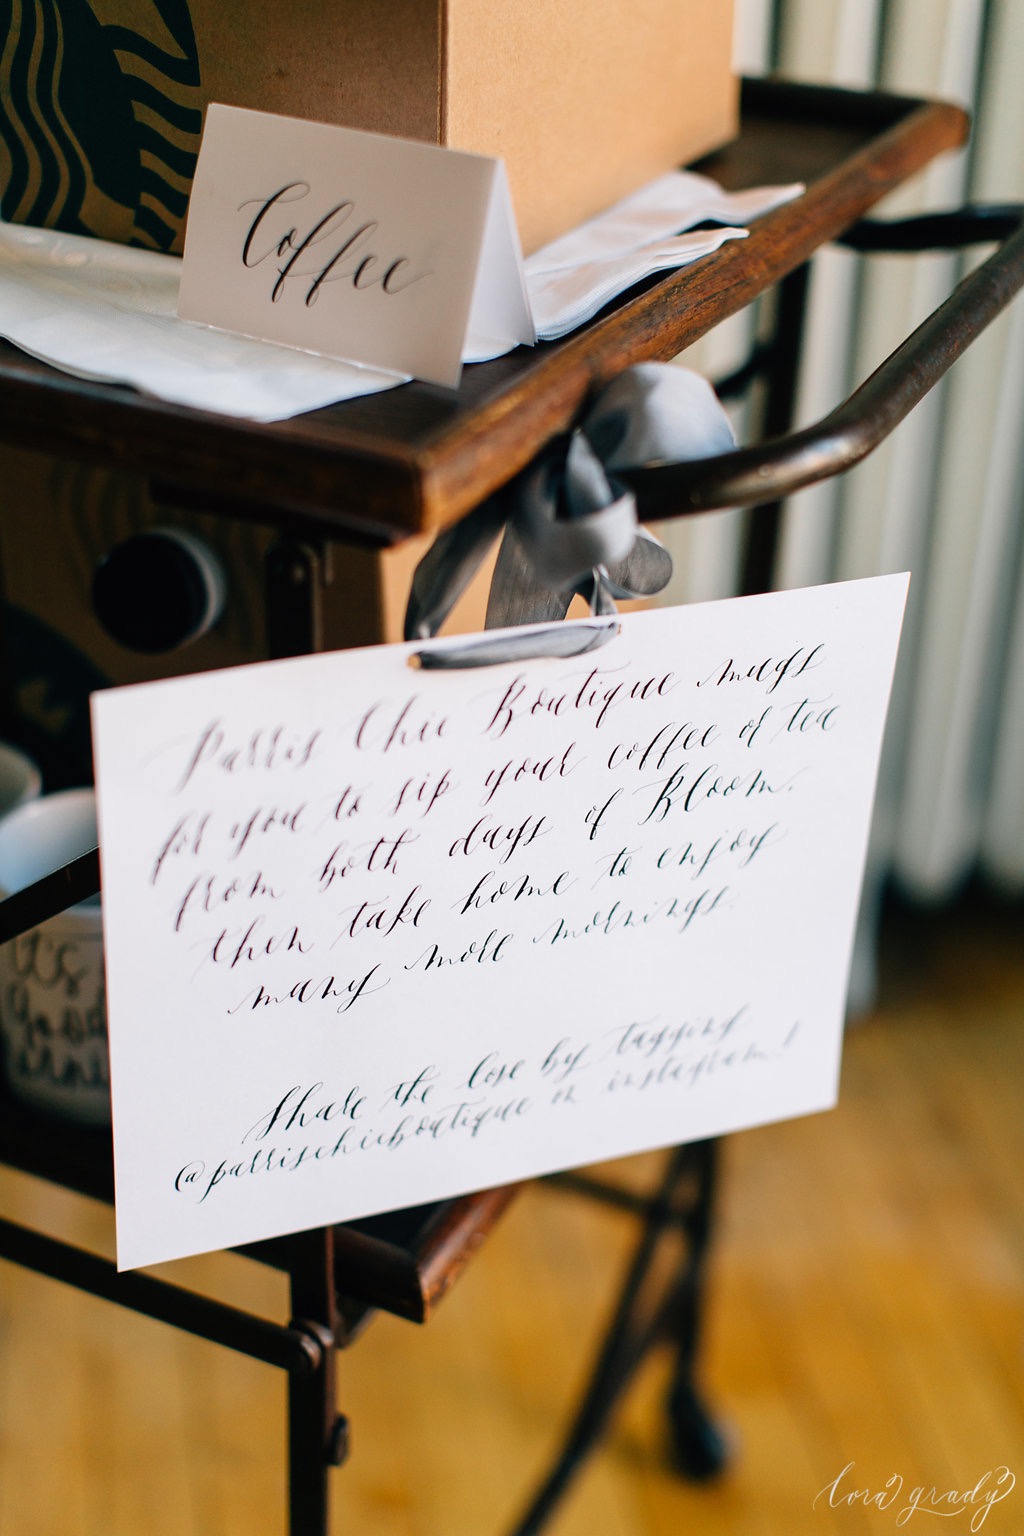 Coffee
Parris Chic Boutique mugs
for you to sip your coffee or tea
from both days of Bloom.
then take home to enjoy
many more mornings.
Share the love by tagging
@parrischicboutique on instagram!
it's
good
lora grady